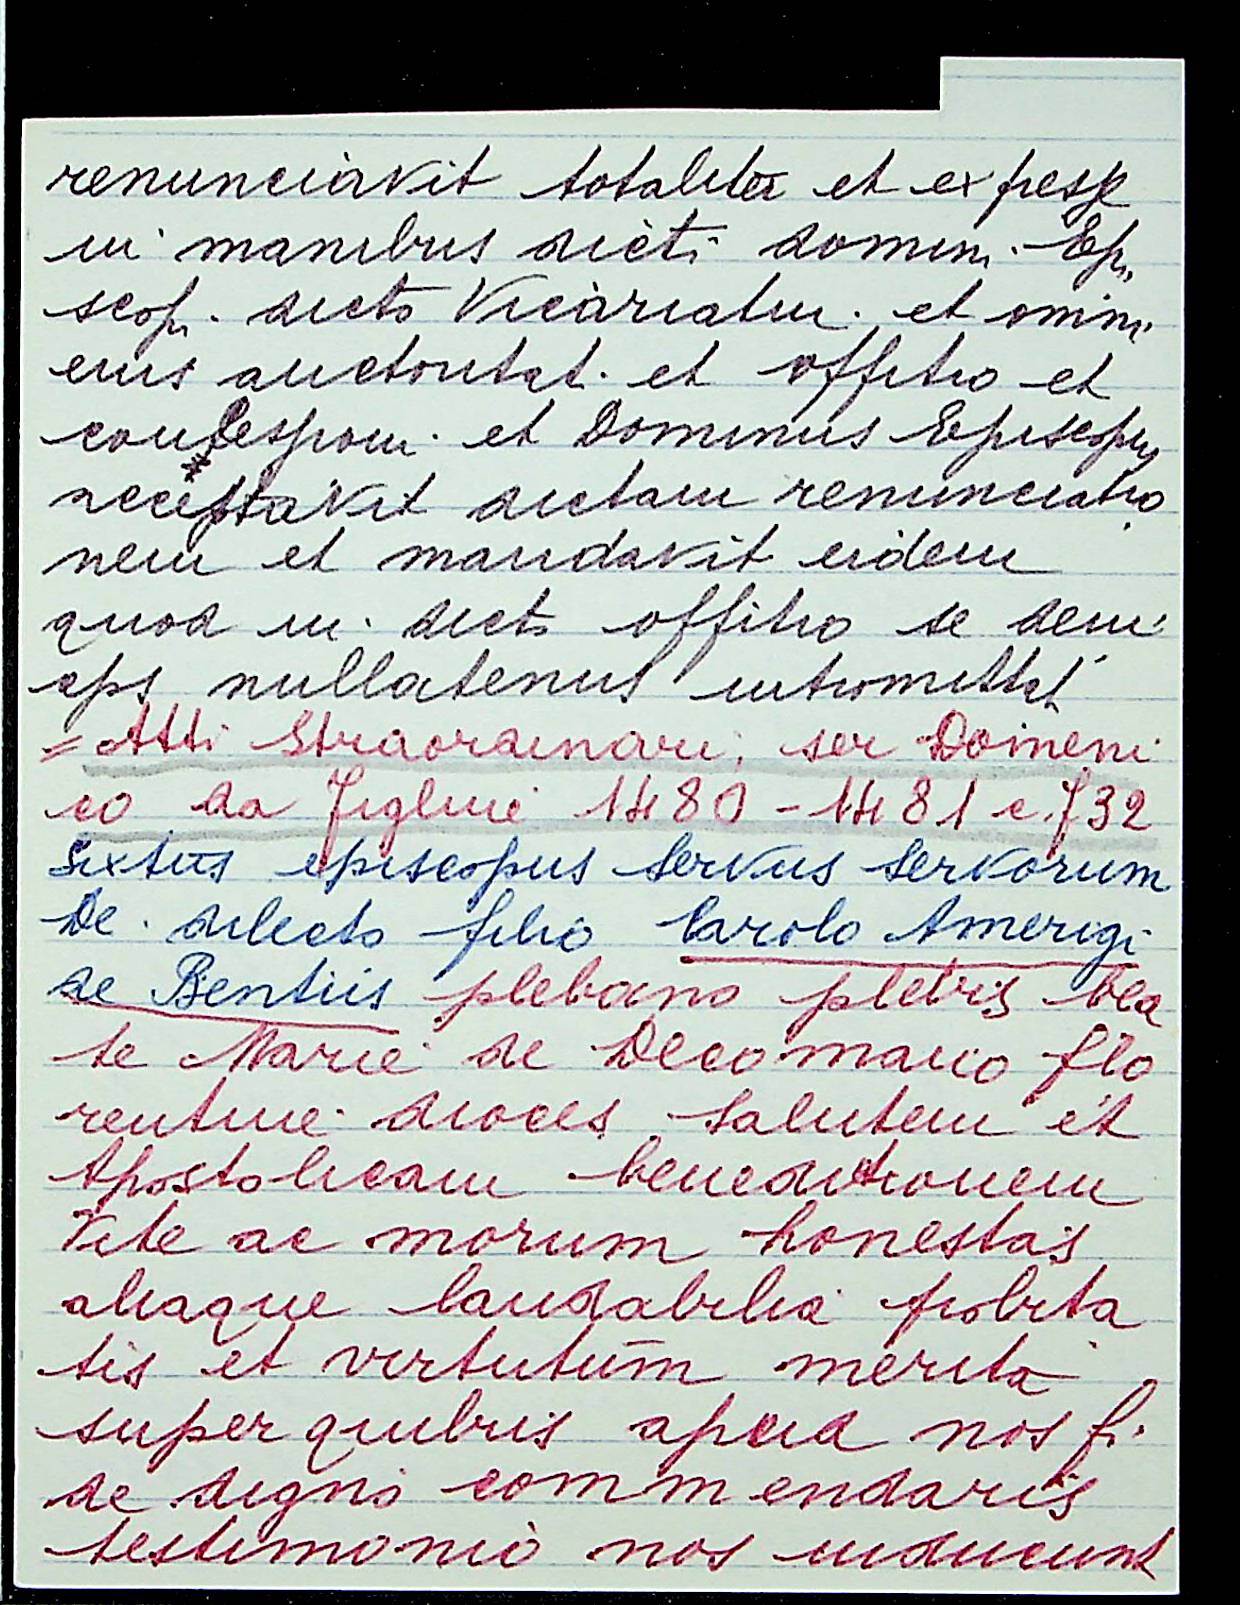 renunciavit totaliter et expresse
in manibus dicti domini Epi
scopi. dicto Vicariatui. et omni
eius auctoritat. et offitio et
et Dominus Episcopus
acceptavit dictam renunciatio
nem et mandavit eidem
quod in. dicto offitio se dein
ceps nullatenus intromittat
= Atti Straordinari, ser Domeni
co da Figline 1480-1481 c. 732
Sixtus episcopus servus servorum
De. dilecto filio Carolo Amerigi
de Bentiis plebano plebis bea
te Marie de Decomano flo
rentine dioces. salutem et
Apostolicam beneditionem
Vite ac morum honestas
aliaque laudabilia probita
tis et virtutum merita
super quibus apud nos fi
de digno commendaris
testimonio nos inducunt